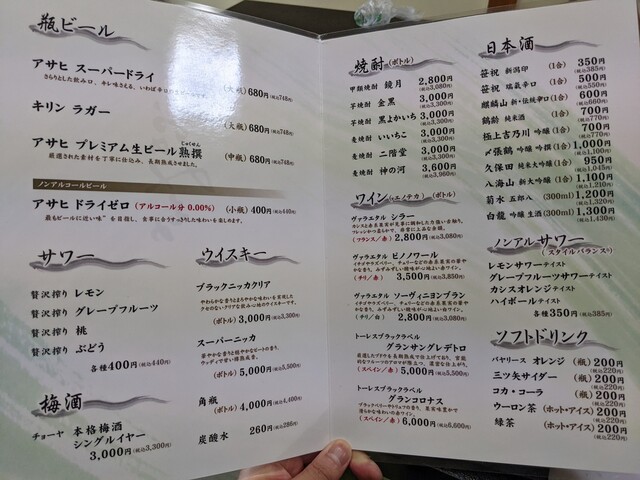 瓶ビール
アサヒ スーパードライ
(大瓶) 680円(税込748円)
キリン ラガー
(大瓶) 680円(税込748円)
アサヒ プレミアム生ビール熟撰
じゅくせん
厳選された素材を丁寧に仕込み、長期熟成させました。
(中瓶) 680円(税込748円)
ノンアルコールビール
アサヒ ドライゼロ (アルコール分 0.00%) (小瓶) 400円(税込440円)
サワー
贅沢搾り レモン
贅沢搾り グレープフルーツ
贅沢搾り 桃
贅沢搾り ぶどう
各種400円(税込440円)
梅酒
チョーヤ 本格梅酒
シングルイヤー
3,000円(税込3,300円)
ウイスキー
ブラックニッカクリア
(ボトル) 3,000円(税込3,300円)
スーパーニッカ
(ボトル) 5,000円(税込5,500円)
角瓶
(ボトル) 4,000円(税込4,400円)
炭酸水 260円(税込286円)
焼酎(ボトル)
甲類焼酎 鏡月 2,800円(税込3,080円)
芋焼酎 金黒 3,000円(税込3,300円)
芋焼酎 黒よかいち 3,000円(税込3,300円)
麦焼酎 いいちこ 3,000円(税込3,300円)
麦焼酎 二階堂 3,000円(税込3,300円)
麦焼酎 神の河 3,600円(税込3,960円)
ワイン(エノテカ) (ボトル)
ヴァラエタル シラー
(フランス/赤) 2,800円(税込3,080円)
ヴァラエタル ピノノワール
(チリ/赤) 3,500円(税込3,850円)
ヴァラエタル ソーヴィニヨンブラン
(チリ/白) 2,800円(税込3,080円)
トーレスブラックラベル
グランサングレデトロ
(スペイン/赤) 5,000円(税込5,500円)
トーレスブラックラベル
グランコロナス
(スペイン/赤) 6,000円(税込6,600円)
日本酒
笹祝 新潟印 (1合) 350円(税込385円)
笹祝 瑞嶽辛口 (1合) 500円(税込550円)
麒麟山 新・伝統辛口 (1合) 600円(税込660円)
鶴齢 純米酒 (1合) 700円(税込770円)
極上吉乃川 吟醸 (1合) 700円(税込770円)
〆張鶴 吟醸 (1合) 1,000円(税込1,100円)
久保田 純米大吟醸 (1合) 950円(税込1,045円)
八海山 新大吟醸 (1合) 1,100円(税込1,210円)
菊水 五郎八 (300ml) 1,200円(税込1,320円)
白龍 吟醸 生酒 (300ml) 1,300円(税込1,430円)
ノンアルサワー
(スタイルバランス)
レモンサワーテイスト
グレープフルーツサワーテイスト
カシスオレンジテイスト
ハイボールテイスト
各種 350円(税込385円)
ソフトドリンク
バヤリース オレンジ (瓶) 200円(税込220円)
三ツ矢サイダー (瓶) 200円(税込220円)
コカ・コーラ (瓶) 200円(税込220円)
ウーロン茶 (ホット・アイス) 200円(税込220円)
緑茶 (ホット・アイス) 200円(税込220円)